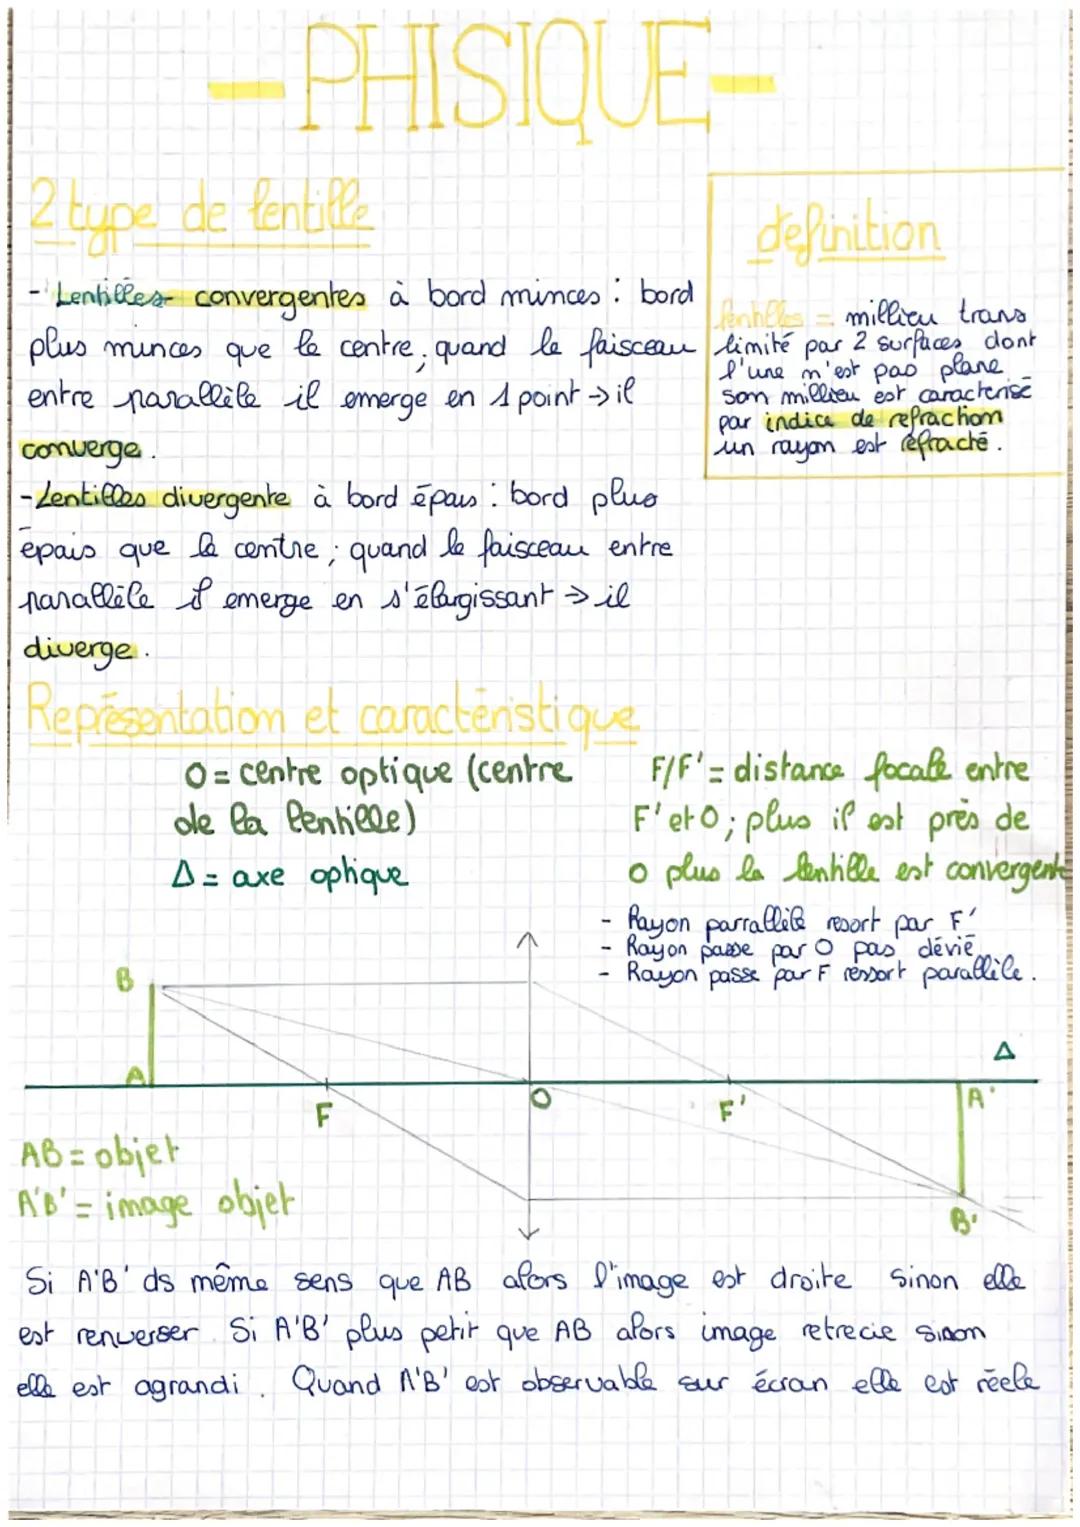 - PHISIQUE -
2 type de lentille
- Lentilles convergentes à bord minces : bord
plus minces que le centre, quand le faisceau
entre parallèle il emerge en 1 point → il
converge.
- Lentilles divergente à bord épais : bord plus
épais que le centre ; quand le faisceau entre
parallèle il emerge en s'élargissant → il
diverge.
definition
lentilles = millieu trans
limité par 2 surfaces dont
l'une n'est pas plane
son millieu est caracterisé
par indice de refraction
un rayon est réfracté.
Représentation et caractéristique
O = centre optique (centre
de la lentille)
Δ = axe optique
F/F' = distance focale entre
F' et O ; plus il est près de
O plus la lentille est convergente
- Rayon parrallèle resort par F'
- Rayon passe par O pas dévié
- Rayon passe par F ressort parallèle.
B
A
F
O
F'
Δ
A'
B'
AB = objet
A'B' = image objet
Si A'B' ds même sens que AB alors l'image est droite sinon elle
est renverser. Si A'B' plus petit que AB alors image retrecie sinon
elle est agrandi. Quand A'B' est observable sur écran elle est réele